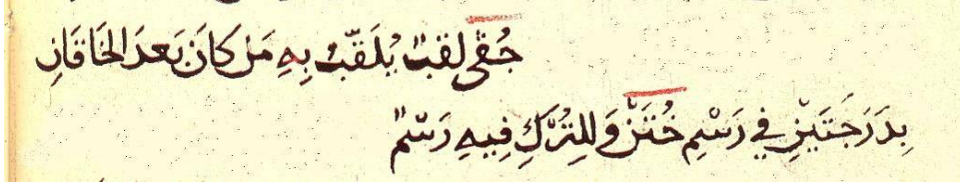 جُفْى لَقَبٌ يُلَقَّبُ بِهِ مَن كَانَ بَعدَ الخَاقَانِ
بِدَرَجَتَيْنِ فِي رَسْمِ خُتَنْ وَلِلتُّرْكِ فِيهِ رَسْمٌ